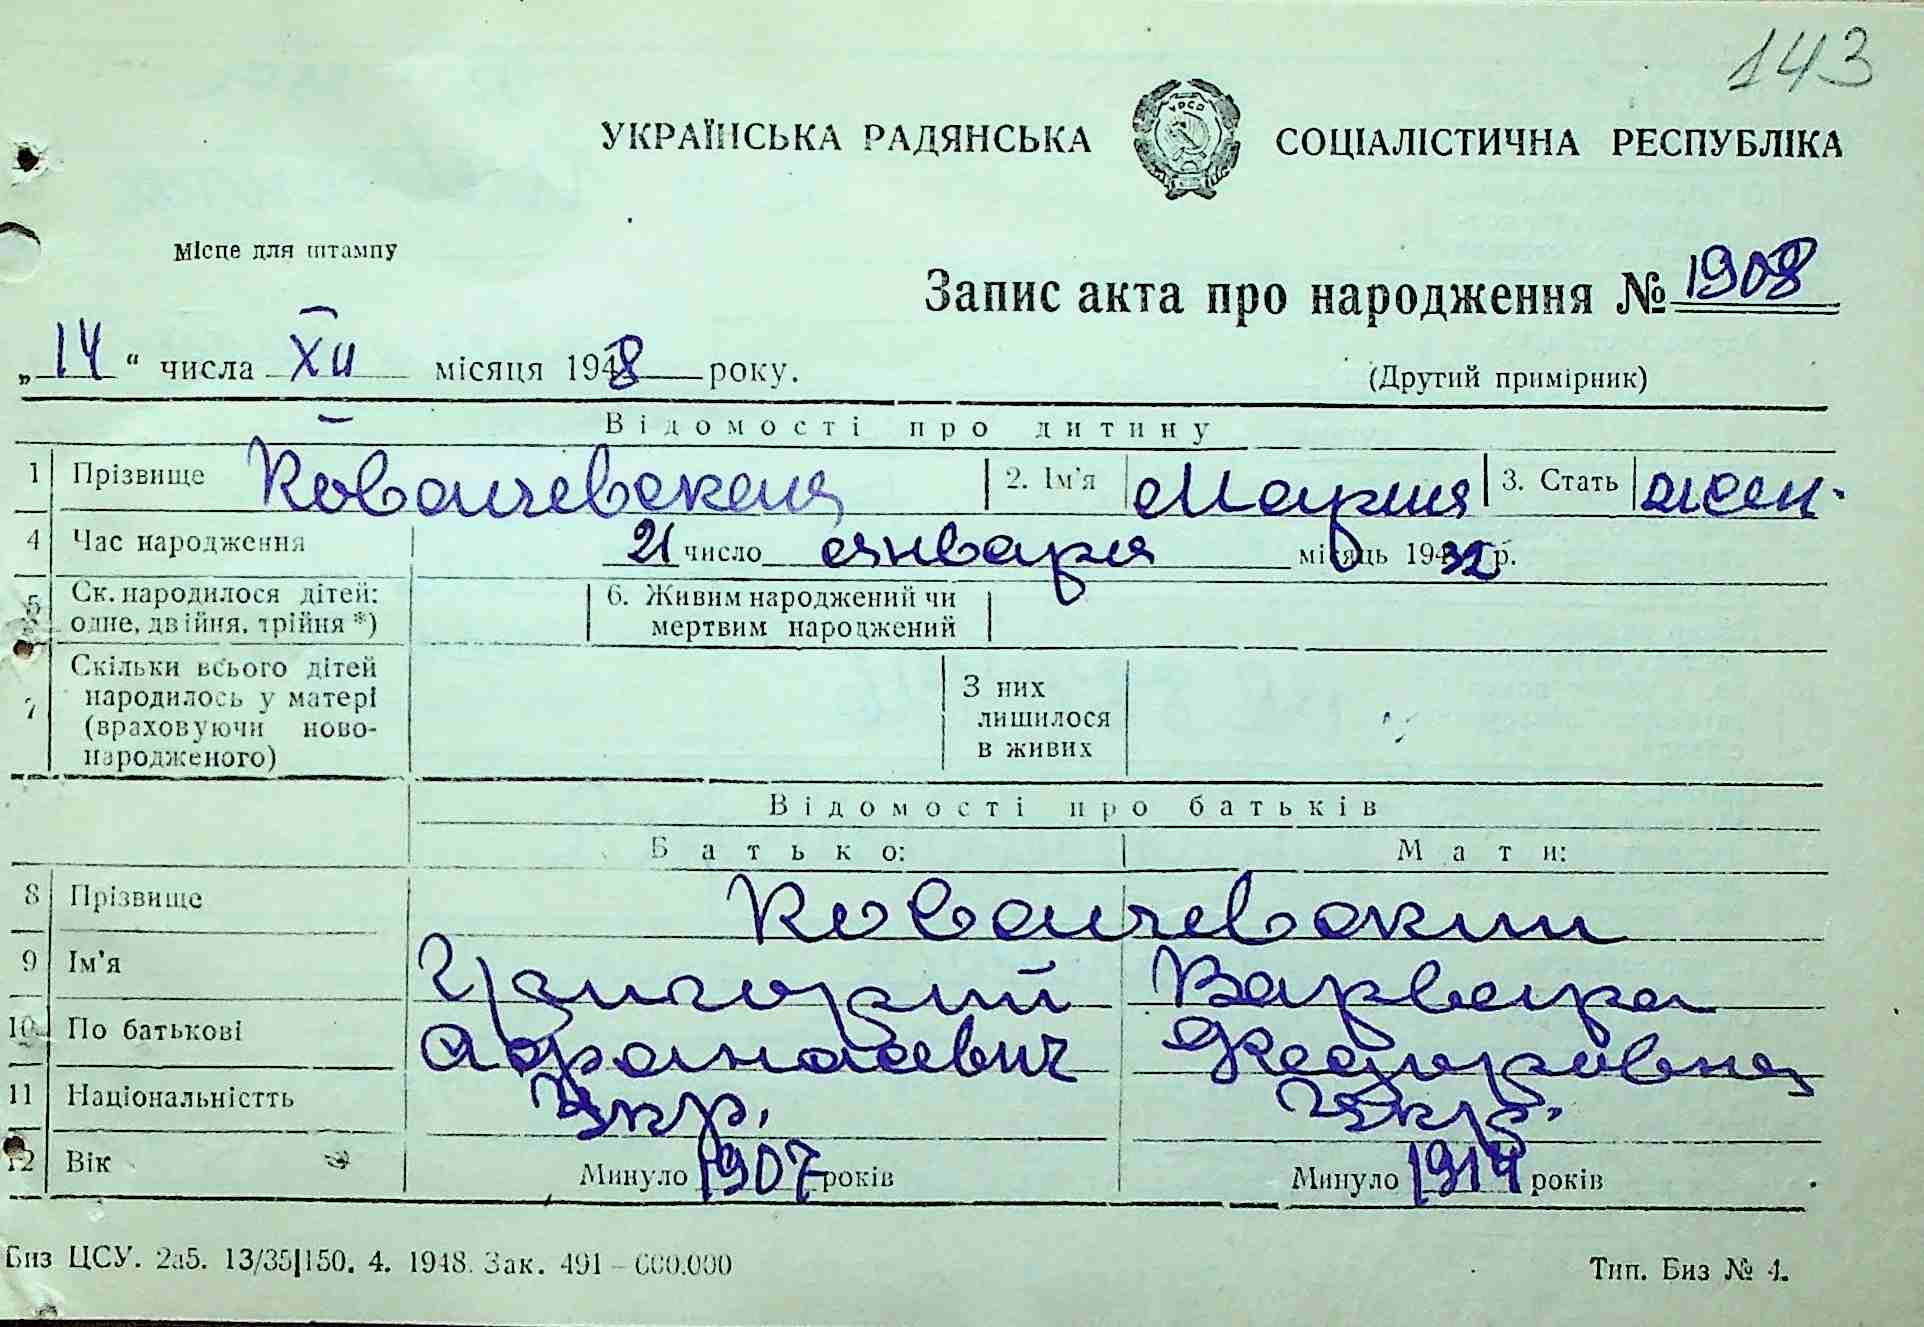 143
УКРАЇНСЬКА РАДЯНСЬКА СОЦІАЛІСТИЧНА РЕСПУБЛІКА
УРСР
Місце для штампу
Запис акта про народження № 1908
„14“ числа XII місяця 1948 року.
(Другий примірник)
Відомості про дитину
1 Прізвище Ковачевская 2. Ім'я Мария 3. Стать жен.
4 Час народження 21 число января місяць 1932 р.
5 Ск. народилося дітей: одне, двійня, трійня *) 6. Живим народжений чи мертвим народжений
7 Скільки всього дітей народилось у матері (враховуючи ново-народженого) З них лишилося в живих
Відомості про батьків
Батько: Мати:
8 Прізвище Ковачевскии
9 Ім'я Григорий Варвара
10 По батькові Афанасевич Федоровна
11 Національністть Укр. Укр.
12 Вік Минуло 1907 років Минуло 1914 років
Биз ЦСУ. 2а5. 13/35|150. 4. 1948. Зак. 491 – 600.000 Тип. Биз № 4.